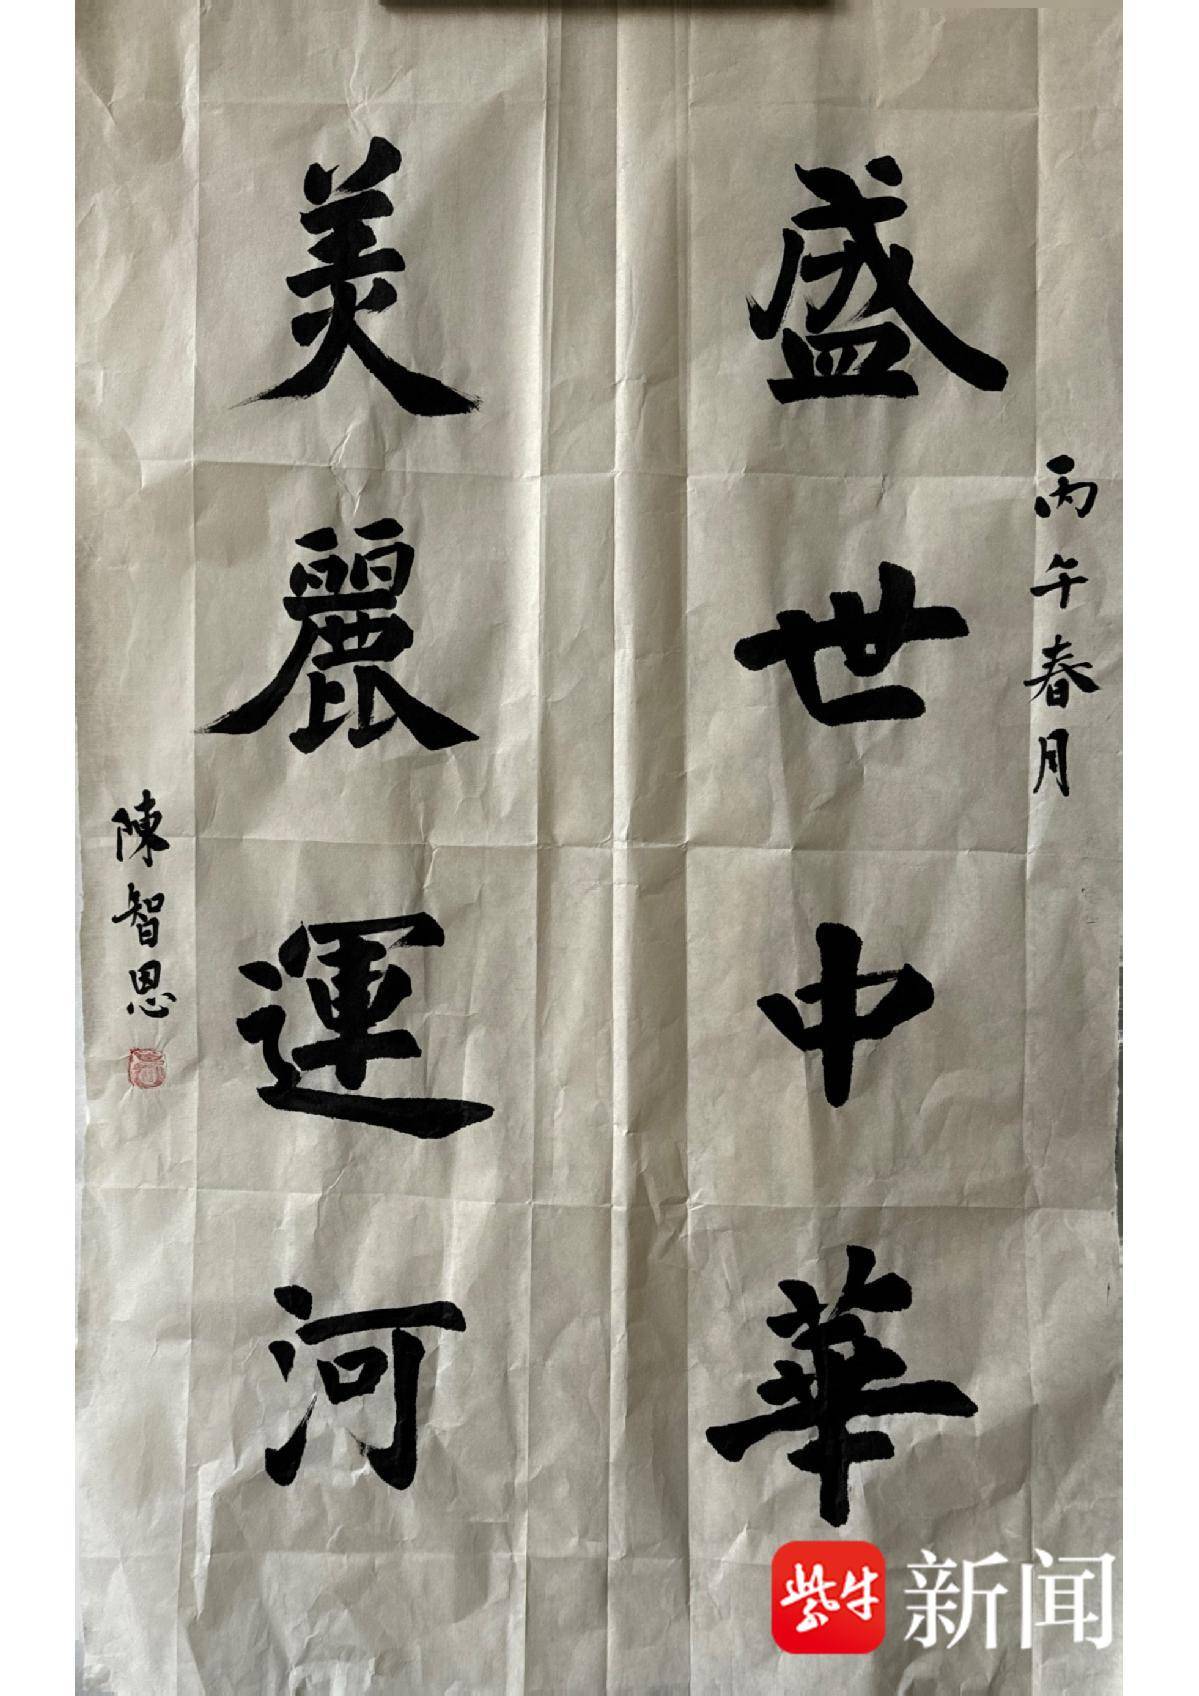 丙午春月
盛世中華
美麗運河
陳智恩
紫牛新闻